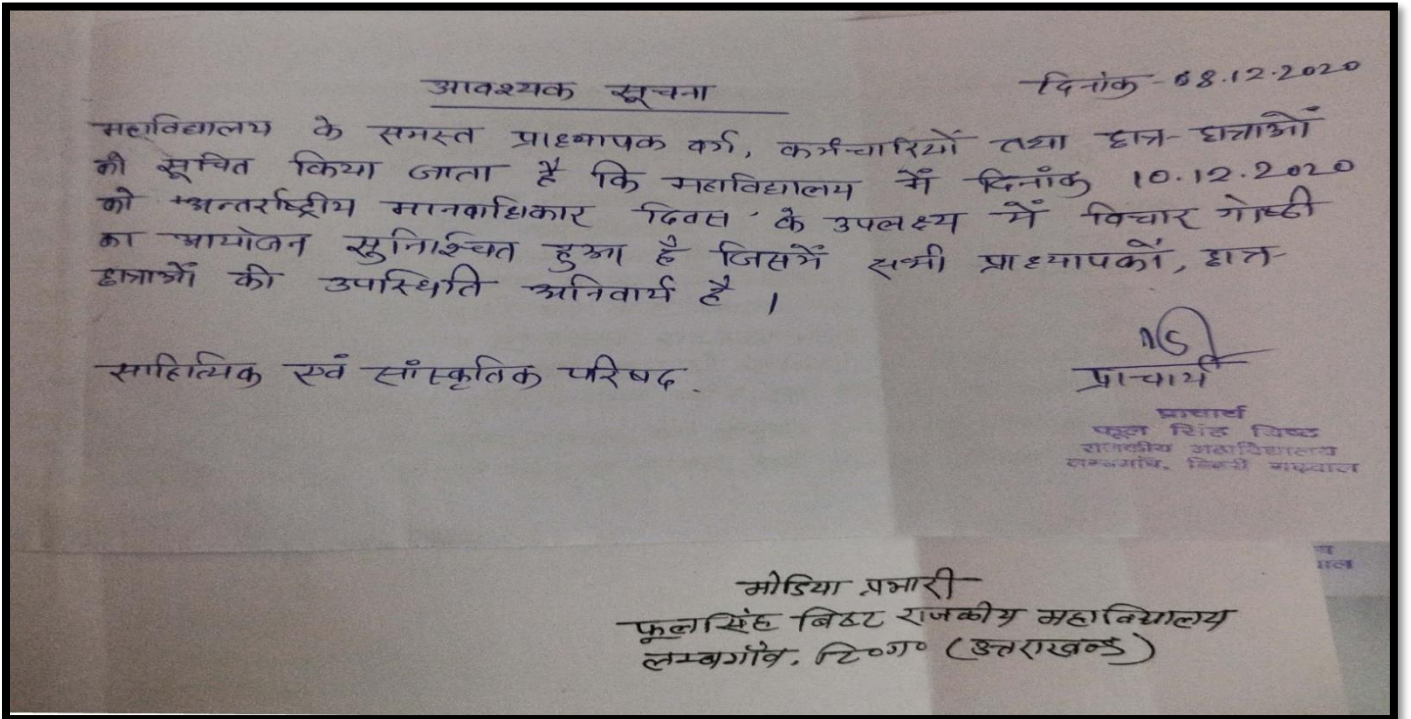 आवश्यक सूचना
दिनांक - 08.12.2020
महाविद्यालय के समस्त प्राध्यापक वर्ग, कर्मचारियों तथा छात्र-छात्राओं
को सूचित किया जाता है कि महाविद्यालय में दिनांक 10.12.2020
को "अन्तर्राष्ट्रीय मानवाधिकार दिवस' के उपलक्ष्य में विचार गोष्ठी
का आयोजन सुनिश्चित हुआ है जिसमें सभी प्राध्यापकों, छात्र-
छात्राओं की उपस्थिति अनिवार्य है ।
साहित्यिक एवं सांस्कृतिक परिषद.
प्राचार्य
प्राचार्य
फूल सिंह बिष्ट
राजकीय महाविद्यालय
लम्बगाँव, टिहरी गढ़वाल
मीडिया प्रभारी
फूलसिंह बिष्ट राजकीय महाविद्यालय
लम्बगाँव, टि०ग० (उत्तराखण्ड)